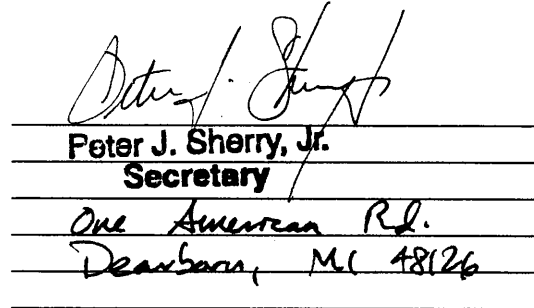 Peter J. Sherry, Jr.
Secretary
One American Rd.
Dearborn, MI 48126